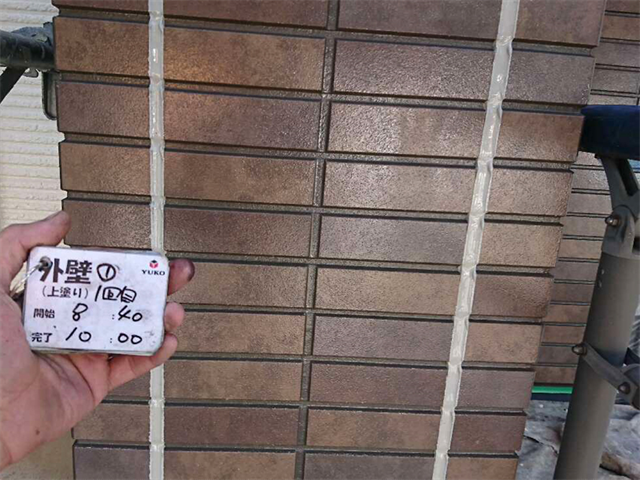 外壁①
YUKO
(上塗り) 1回目
開始 8:40
完了 10:00